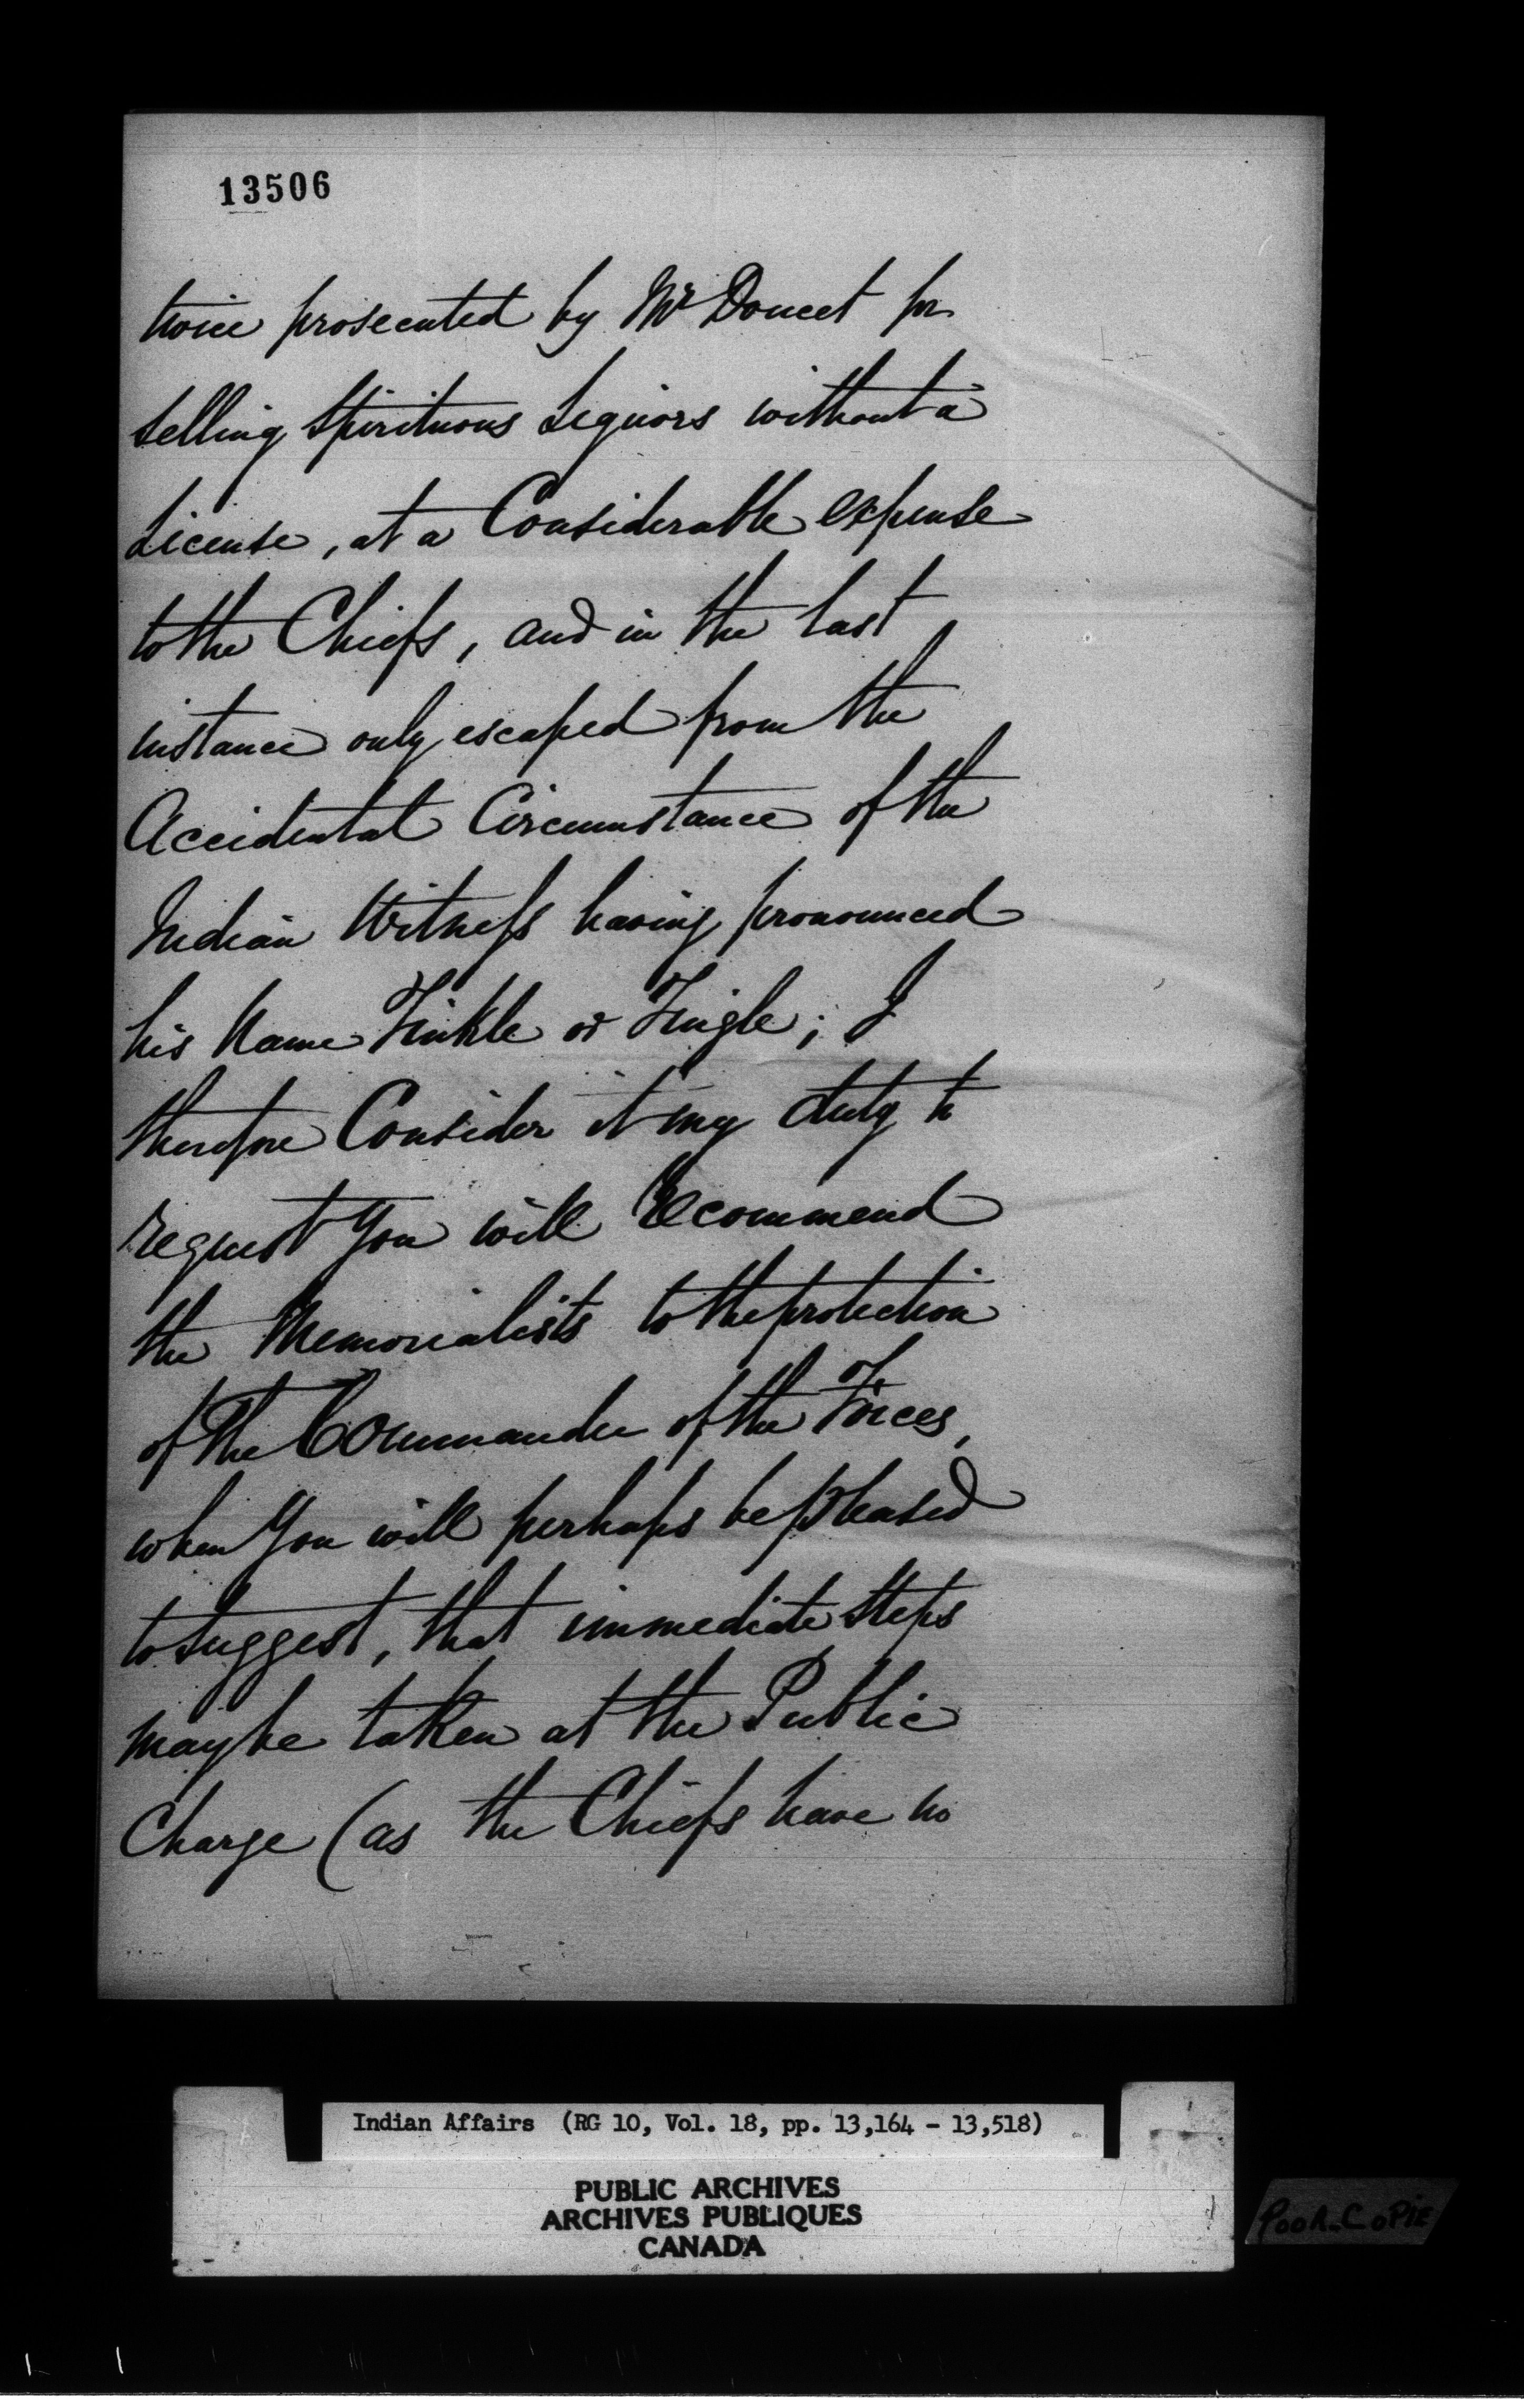 13506
twice prosecuted by Mr Doucet for
selling Spirituous Liquors without a
License, at a Considerable expense
to the Chiefs, and in the last
instance only escaped from the
Accidental Circumstance of the
Indian Witness having pronounced
his Name Finkle or Fingle; I
therefore Consider it my duty to
request You will Recommend
the Memorialists to the protection
of The Commander of the Forces,
when You will perhaps be pleased
to suggest, that immediate steps
may be taken at the Public
Charge (as the Chiefs have no
Indian Affairs (RG 10, Vol. 18, pp. 13,164 - 13,518)
PUBLIC ARCHIVES
ARCHIVES PUBLIQUES
CANADA
POOR COPIE